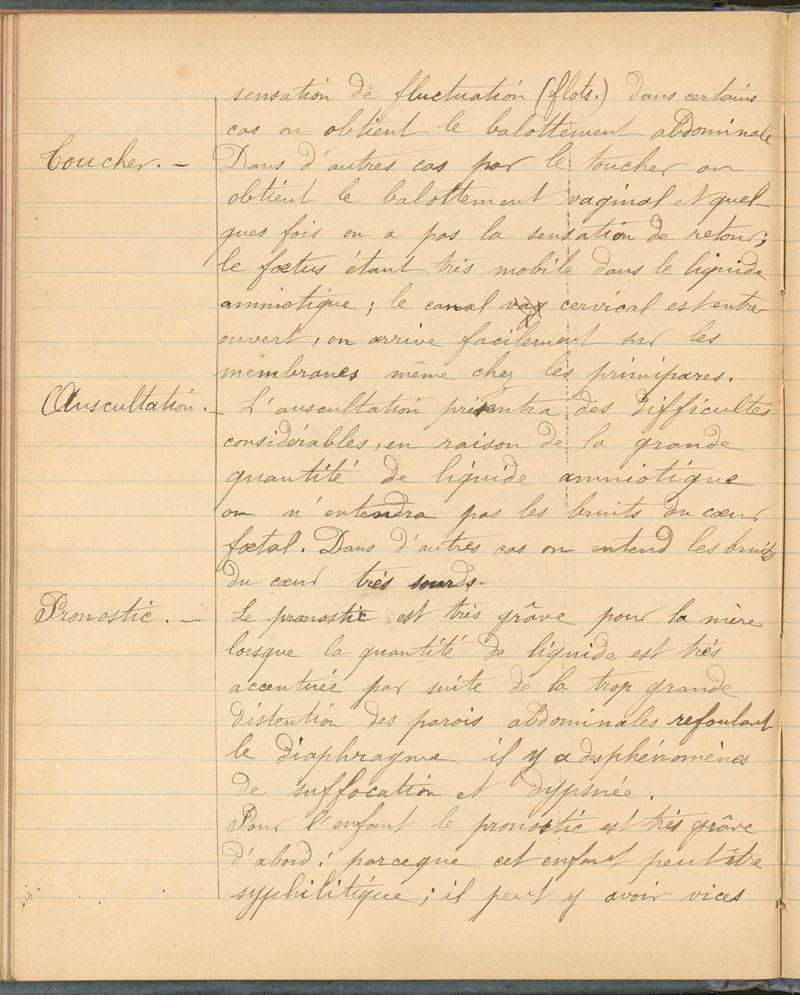 sensation de fluctuation (flots.) Dans certains
cas on obtient le balottement abdominale
Toucher. — Dans d'autres cas par le toucher on
obtient le balottement vaginal et quel-
ques fois on a pas la sensation de retour;
le fœtus étant très mobile dans le liquide
amniotique; le canal vag cervical est entre
ouvert, on arrive facilement sur les
membranes même chez les primipares.
Auscultation. — L'auscultation présentra des difficultés
considérables, en raison de la grande
quantité de liquide amniotique
on n'entendra pas les bruits du cœur
fœtal. Dans d'autres cas on entend les bruits
du cœur très sourds.
Pronostic. — Le pronostic est très grâve pour la mère
lorsque la quantité de liquide est très
accentuée par suite de la trop grande
distention des parois abdominales refoulant
le diaphragme il y a des phénomènes
de suffocation et dypsnée.
Pour l'enfant le pronostic est très grâve
d'abord: parceque cet enfant peut être
syphilitique; il peut y avoir vices